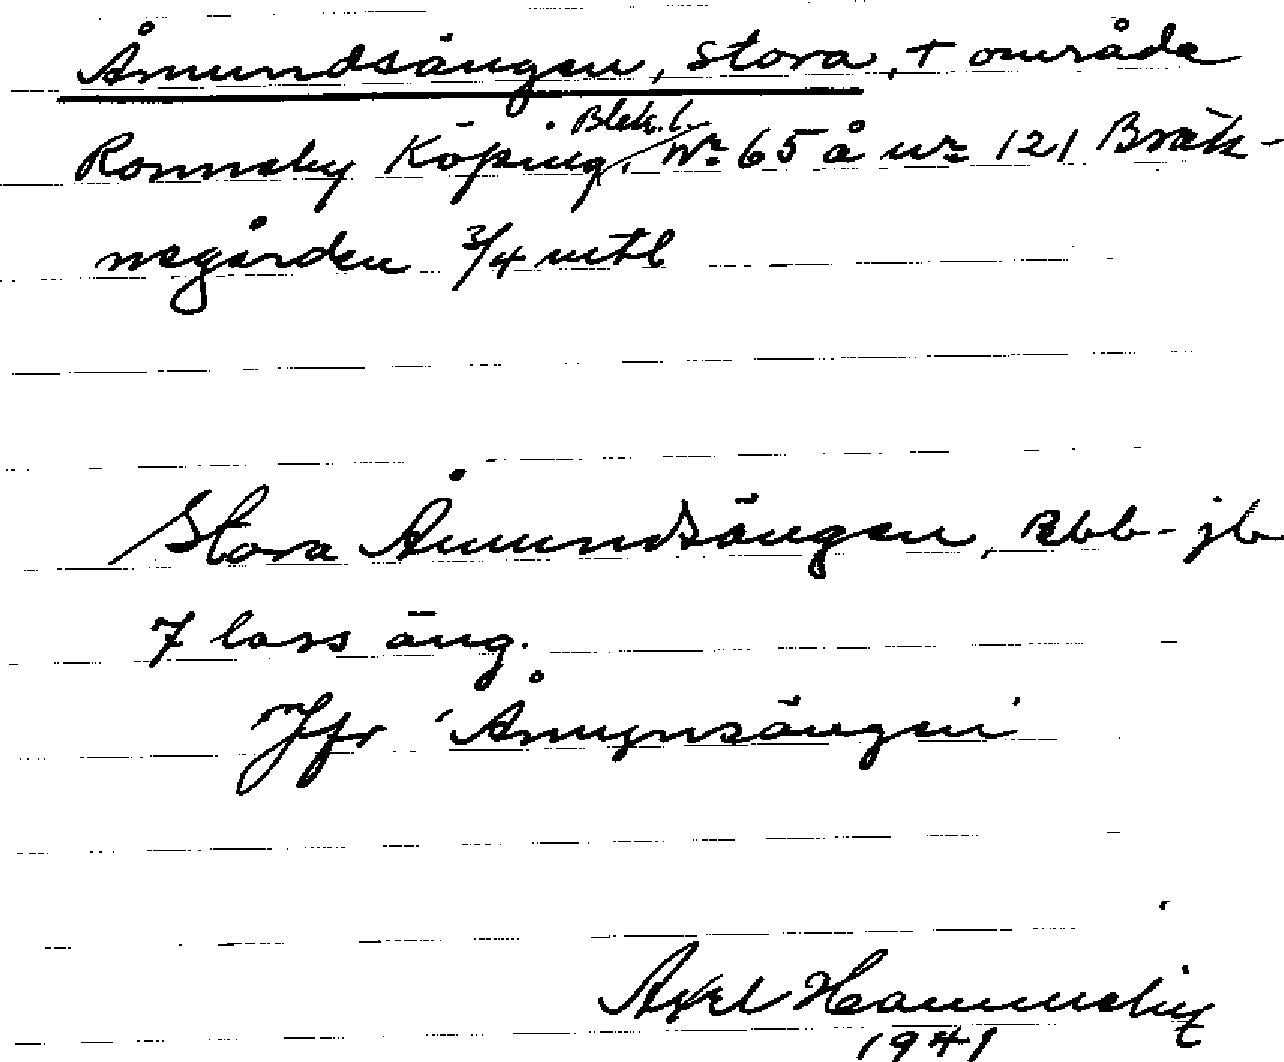 Åmundsängen, Stora, + område
Blek. l.
Ronneby Köping. Nr 65 å nr 121 Bräk-
negården 3/4 mtl
Stora Åmundsängen, Rbb-jb
7 lass äng.
Jfr 'Åmynsängen'
Axel
1941